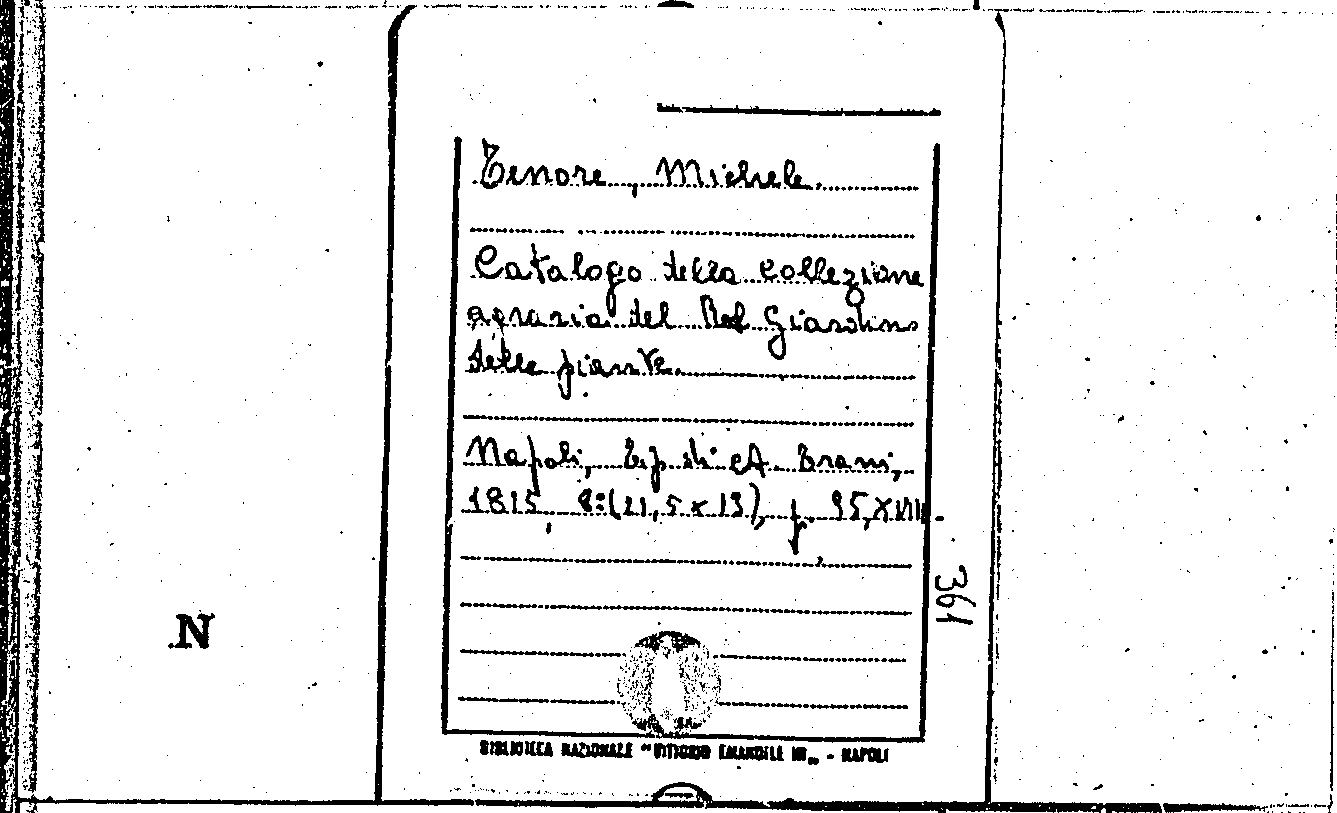 Tenore, Michele.
Catalogo della collezione
agraria del Real Giardino
delle piante.
Napoli, Tip. di A. Trani,
1815, 8:(21,5 x 13), p. 95, XVIII.
361
N
BIBLIOTECA NAZIONALE "VITTORIO EMANUELE III„ - NAPOLI